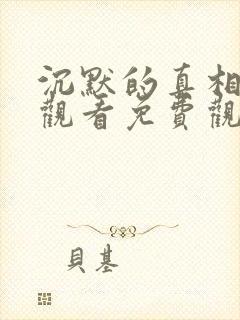 沉默的真相
觀看免費觀
貝基